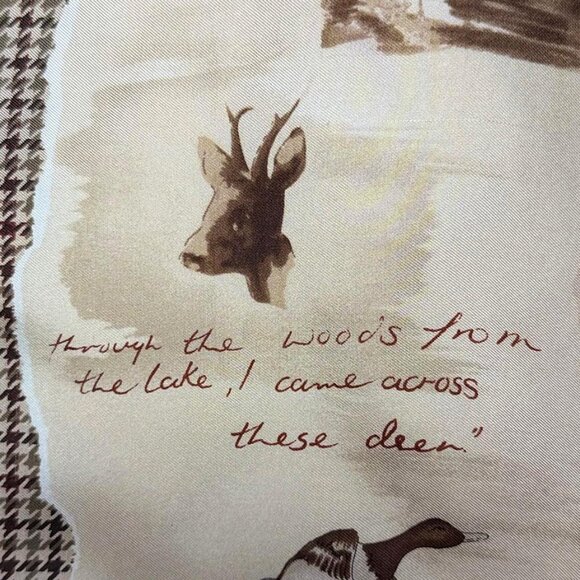 through the woods from
the lake, I came across
these deer."